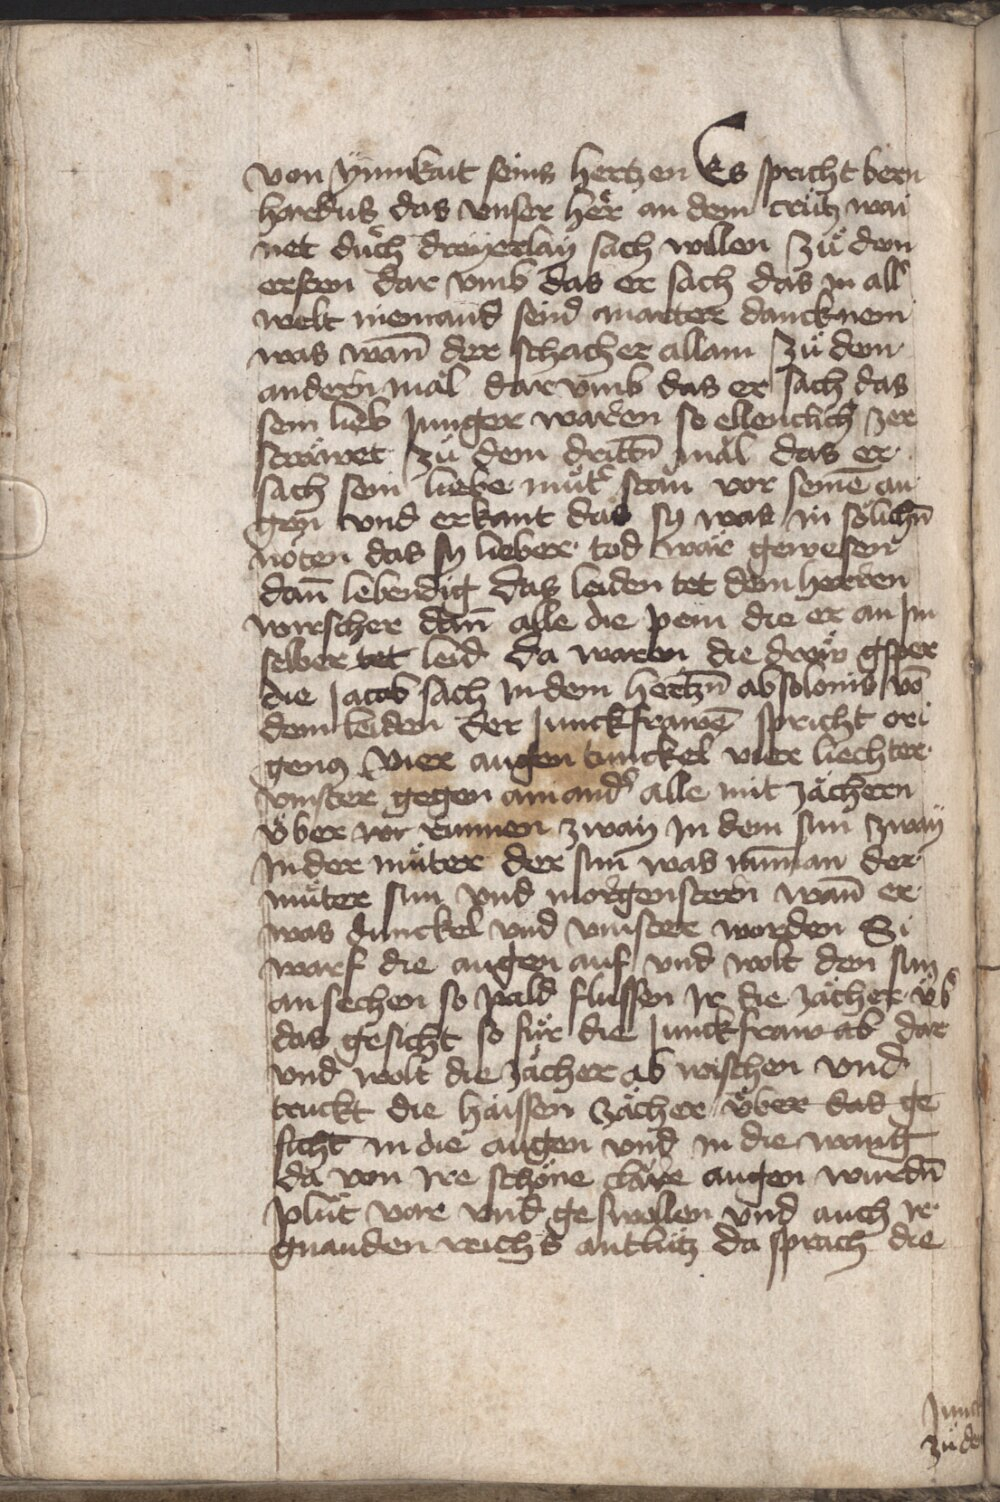 von ynnikait seins hertzen Es spricht bern
hardus das vnser her an dem crütz wai
net duch dreyerlay sach willen zü dem
ersten dar vmb das er sach das in all
welt niemand seind marter danck nem
was wan̄ der schacher allain zü dem
andern mal dar vmb das er sach das
sein lieb Junger waren so ellenclich zer
sträwet zü dem dritt̄n mäl das er
sach sein liebe müt̄ stan vor seinē au
gen vnd erkant das sy was in solich̄n
nöten das sy lieber tod wär gewesen
dan̄ lebendig das leiden tet dem herren
wirscher dan̄ alle die pein die er an Im
selber tet leid Da waren die drew gsper
die Jacob sach In dem hertz̄n absolonis vō
dem leiden der Junckfrawē spricht ori
genꝰ Vier augen tunckel vier liechter
vinster gegen ain and̄ alle mit zächern
vber wr runnen zway In dem sun zway
In der müter der sun was nun̄ an der
müter sun vnd morgenstern wan̄ er
was dunckel vnd vinster worden Si
warf die augen auf vnd wolt den sun
an sechen so pald flussen Ir die zächer vb̄
das gesicht so für die Junckfraw ab dar
vnd wolt die zächer ab wischen vnd
truckt die haissen zächer vber das ge
sicht in die augen vnd in die wang
da von Ire schöne clare augen wurd̄n
plüt var vnd geswollen vnd auch Ir
gnauden reichs antlütz da sprach die
Junck
zü de